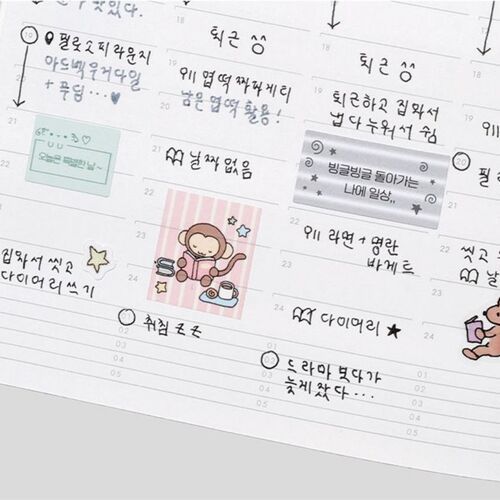 맛있었다.
필로소피 라운지
아드벡 우거다일
+ 푸딩…♥
오늘은 특별한 날~
집와서 씻고
다이어리쓰기
퇴근
엽떡 짜파게리
남은 엽떡 활용!
날짜 없음
취침 zzz
퇴근
퇴근하고 집와서
냅다 누워서 쉼
빙글빙글 돌아가는
나에 일상,,
라면 + 명란
바게트
다이어리 ★
드라마 보다가
늦게 잤다…
필
씻고
날
18
19
20
21
22
23
24
01
02
03
04
05